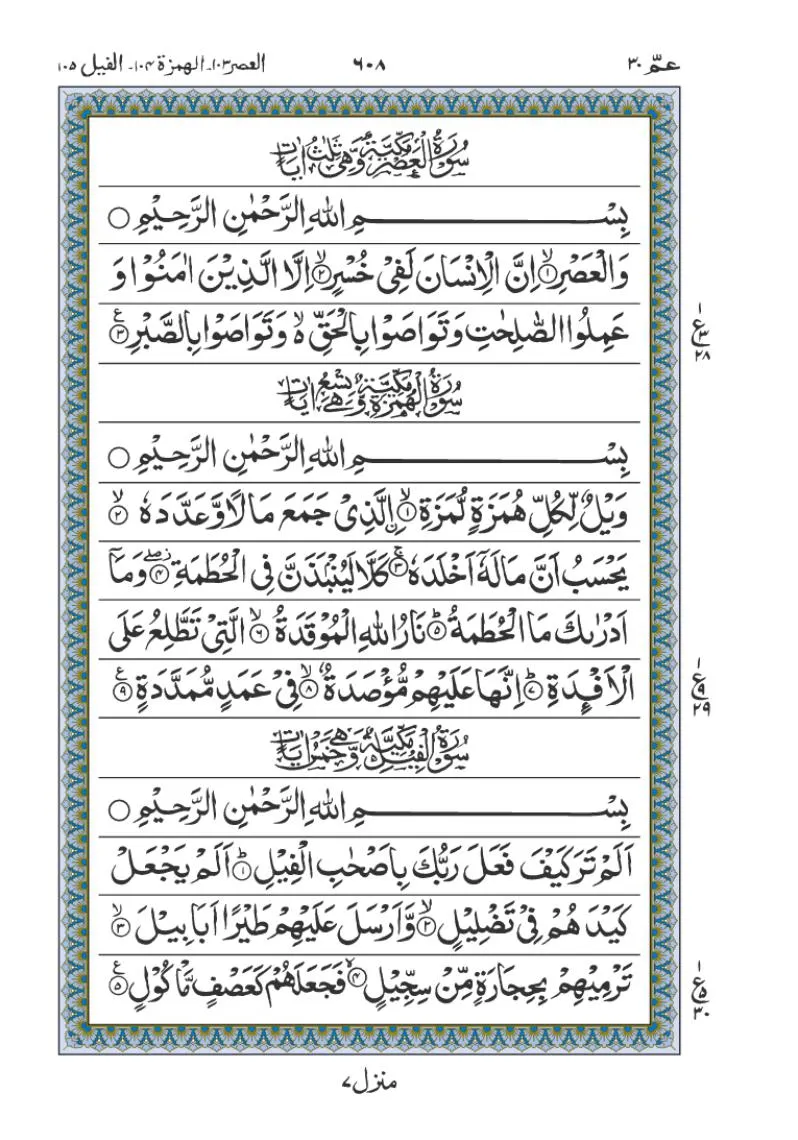 عمّ ٣٠ ٦٠٨ العصر ١٠٣۔ الهمزة ١٠۴۔ الفيل ١٠٥
سُوْرَةُ الْعَصْرِ مَكِّيَّةٌ وَّهِيَ ثَلٰثُ اٰيَاتٍ
بِسْــــــــمِ اللّٰهِ الرَّحْمٰنِ الرَّحِيْمِ ○
وَالْعَصْرِ ۙ﴿١﴾ اِنَّ الْاِنْسَانَ لَفِيْ خُسْرٍ ۙ﴿٢﴾ اِلَّا الَّذِيْنَ اٰمَنُوْا وَ
عَمِلُوا الصّٰلِحٰتِ وَتَوَاصَوْا بِالْحَقِّ ۙ۬ وَتَوَاصَوْا بِالصَّبْرِ ﴿٣﴾ ع
١ ع ٣ ٢٨
سُوْرَةُ الْهُمَزَةِ مَكِّيَّةٌ وَّهِيَ تِسْعُ اٰيَاتٍ
بِسْــــــــمِ اللّٰهِ الرَّحْمٰنِ الرَّحِيْمِ ○
وَيْلٌ لِّكُلِّ هُمَزَةٍ لُّمَزَةِ ۙ﴿١﴾ اۨلَّذِيْ جَمَعَ مَالًا وَّعَدَّدَهٗ ۙ﴿٢﴾
يَحْسَبُ اَنَّ مَالَهٗۤ اَخْلَدَهٗ ۚ﴿٣﴾ كَلَّا لَيُنْۢبَذَنَّ فِي الْحُطَمَةِ ۖ﴿۴﴾ وَمَاۤ
اَدْرٰىكَ مَا الْحُطَمَةُ ؕ﴿۵﴾ نَارُ اللّٰهِ الْمُوْقَدَةُ ۙ﴿٦﴾ الَّتِيْ تَطَّلِعُ عَلَى
الْاَفْـِٕدَةِ ؕ﴿٧﴾ اِنَّهَا عَلَيْهِمْ مُّؤْصَدَةٌ ۙ﴿٨﴾ فِيْ عَمَدٍ مُّمَدَّدَةٍ ﴿٩﴾ ع
١ ع ٩ ٢٩
سُوْرَةُ الْفِيْلِ مَكِّيَّةٌ وَّهِيَ خَمْسُ اٰيَاتٍ
بِسْــــــــمِ اللّٰهِ الرَّحْمٰنِ الرَّحِيْمِ ○
اَلَمْ تَرَ كَيْفَ فَعَلَ رَبُّكَ بِاَصْحٰبِ الْفِيْلِ ؕ﴿١﴾ اَلَمْ يَجْعَلْ
كَيْدَهُمْ فِيْ تَضْلِيْلٍ ۙ﴿٢﴾ وَّاَرْسَلَ عَلَيْهِمْ طَيْرًا اَبَابِيْلَ ۙ﴿٣﴾
تَرْمِيْهِمْ بِحِجَارَةٍ مِّنْ سِجِّيْلٍ ۪ۙ﴿۴﴾ فَجَعَلَهُمْ كَعَصْفٍ مَّاْكُوْلٍ ﴿۵﴾ ع
١ ع ۵ ٣٠
منزل ٧